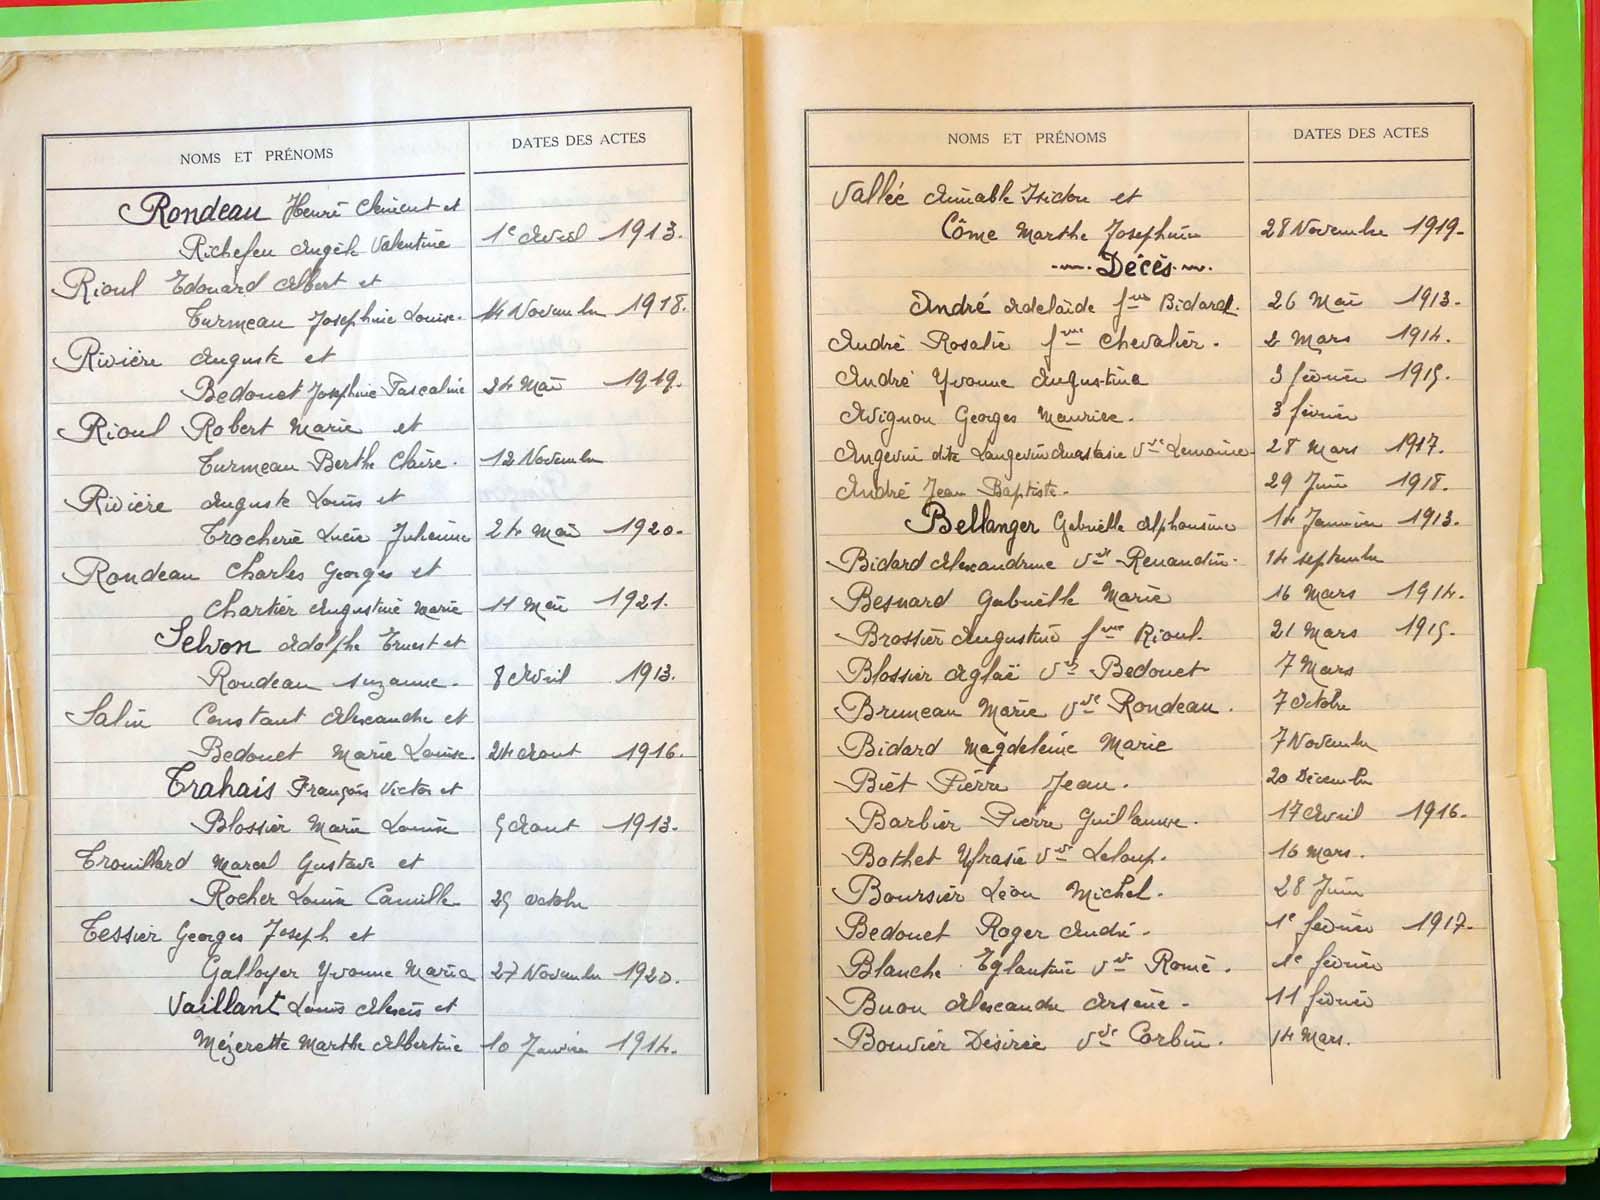 NOMS ET PRÉNOMS DATES DES ACTES
Rondeau Henri Clément et
Richefeu Angèle Valentine 1e Avril 1913.
Rioul Edouard Albert et
Turmeau Joséphine Louise. 14 Novembre 1918.
Rivière Auguste et
Bedouet Joséphine Pascaline 24 Mai 1919.
Rioul Robert Marie et
Turmeau Berthe Claire. 12 Novembre
Rivière Auguste Louis et
Trocherie Lucie Julienne 24 Mai 1920.
Rondeau Charles Georges et
Chartier Augustine Marie 11 Mai 1921.
Selvon Adolphe Ernest et
Rondeau Suzanne. 8 Avril 1913.
Salin Constant Alexandre et
Bedouet Marie Louise. 24 Aout 1916.
Trahais François Victor et
Blossier Marie Louise 5 Aout 1913.
Trouillard Marcel Gustave et
Rocher Louise Camille 25 Octobre
Tessier Georges Joseph et
Galloyer Yvonne Maria 27 Novembre 1920.
Vaillant Louis Alexis et
Mézerette Marthe Albertine 10 Janvier 1914.
NOMS ET PRÉNOMS DATES DES ACTES
Vallée Aimable Isidore et
Côme Marthe Joséphine 28 Novembre 1919.
Décès.
André Adelaïde fme Bidard. 26 Mai 1913.
André Rosalie fme Chevalier. 2 Mars 1914.
André Yvonne Augustine 3 février 1915.
Avignon Georges Maurice. 3 février
Angevin dite Langevin Anastasie Vve Lemoine. 28 Mars 1917.
André Jean Baptiste. 29 Juin 1918.
Bellanger Gabrielle Alphonsine 14 Janvier 1913.
Bidard Alexandrine Vve Renaudin. 14 septembre
Besnard Gabrielle Marie 16 Mars 1914.
Brossier Augustine fme Rioul. 21 Mars 1915.
Blossier Aglaë Vve Bedouet 7 Mars
Bruneau Marie Vve Rondeau. 7 Octobre
Bidard Magdeleine Marie 7 Novembre
Biet Pierre Jean. 20 Décembre
Barbier Pierre Guillaume. 17 Avril 1916.
Bothet Yfrasie Vve Leloup. 16 Mars.
Boursier Léon Michel. 28 Juin
Bedouet Roger André. 1e février 1917.
Blanche Eglantine Vve Romé. 1e février
Buon Alexandre Arsène. 11 février
Bouvier Désirée Vve Corbin. 14 Mars.